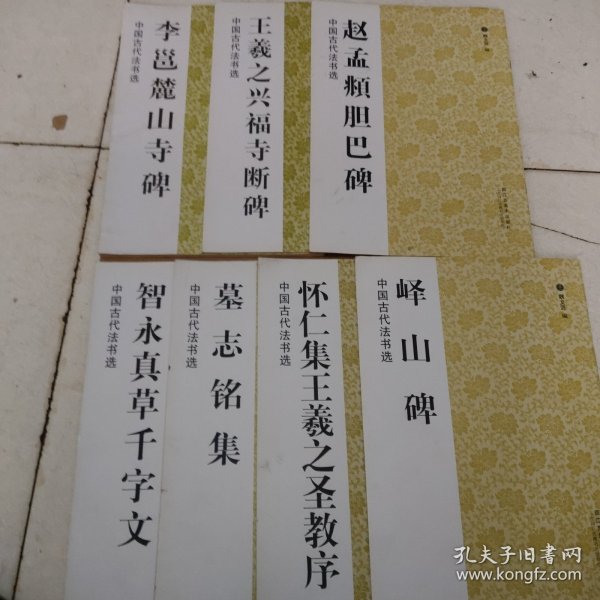 李邕麓山寺碑
中国古代法书选
王羲之兴福寺断碑
中国古代法书选
赵孟頫胆巴碑
中国古代法书选
智永真草千字文
中国古代法书选
墓志铭集
中国古代法书选
怀仁集王羲之圣教序
中国古代法书选
峄山碑
中国古代法书选
孔夫子旧书网
www.kongfz.com